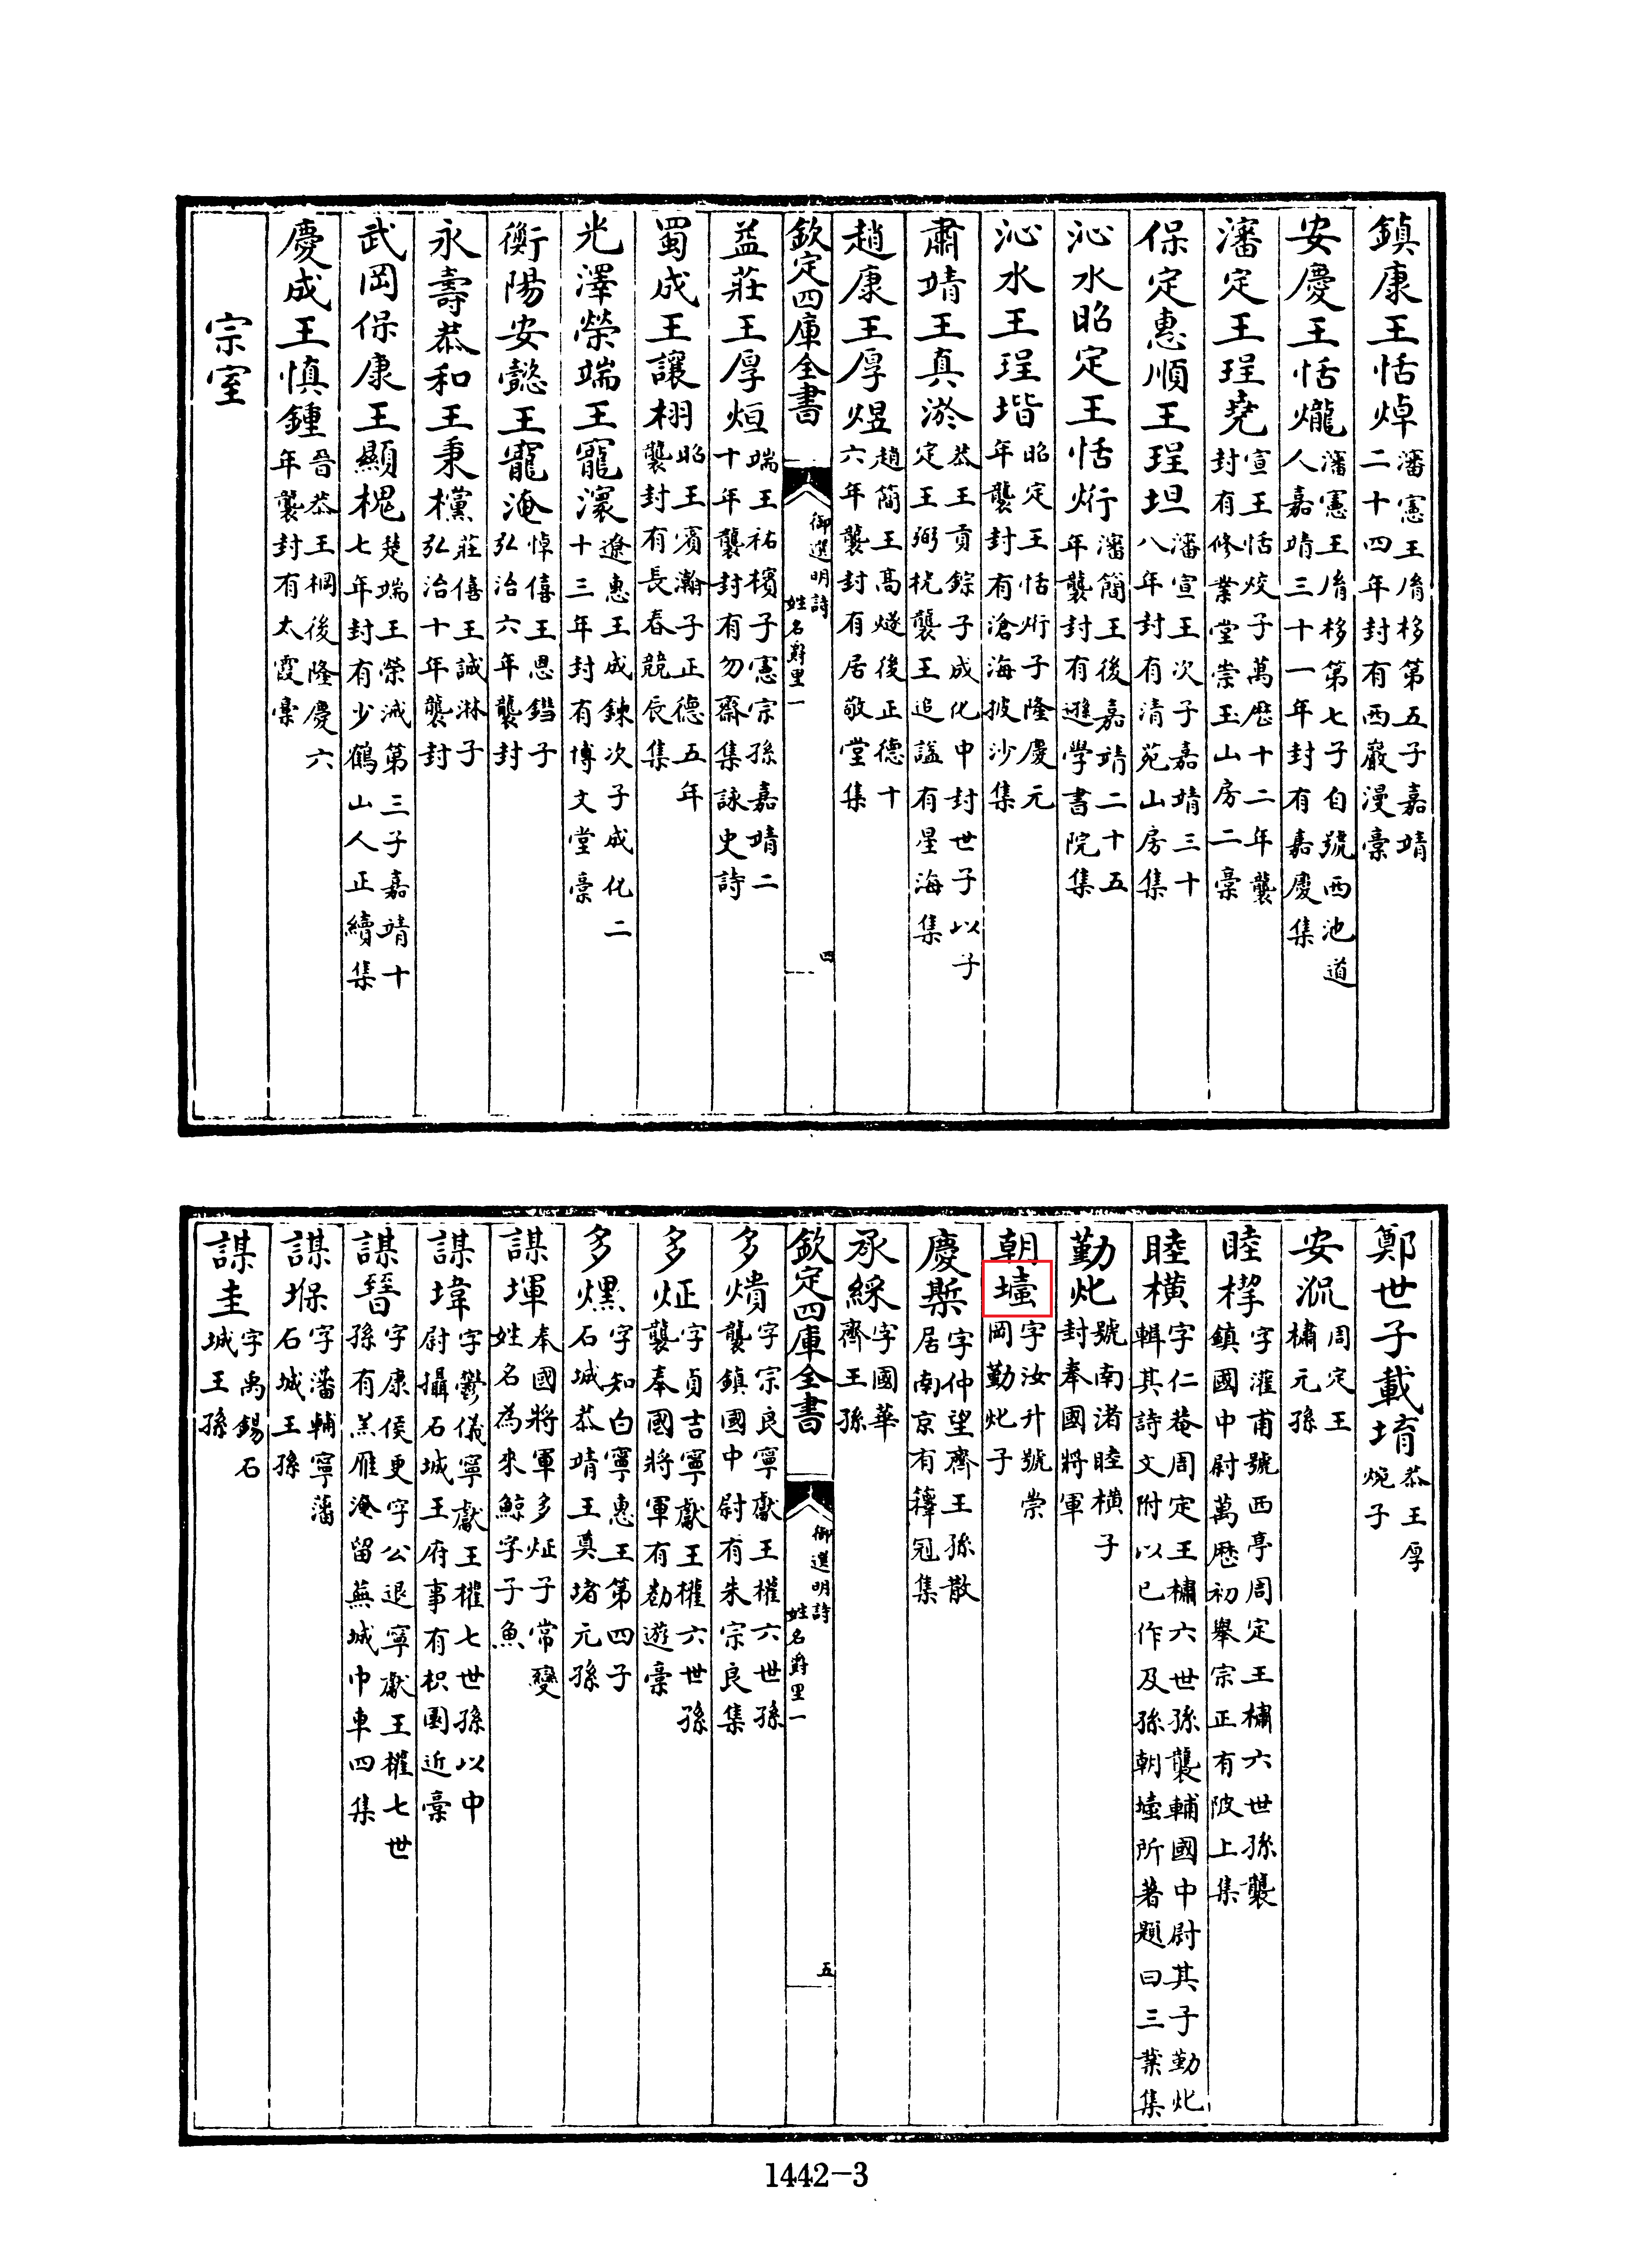 鎮康王恬焯瀋憲王㣧栘第五子嘉靖二十四年封有西巖漫稾
安慶王恬爖瀋憲王㣧栘第七子自號西池道人嘉靖三十一年封有嘉慶集
瀋定王珵堯宣王恬烄子萬厯十二年襲封有修業堂崇玉山房二稾
保定惠順王珵坦瀋宣王次子嘉靖三十八年封有清苑山房集
沁水昭定王恬烆瀋簡王後嘉靖二十五年襲封有遜學書院集
沁水王珵堦昭定王恬烆子隆慶元年襲封有滄海披沙集
肅靖王真淤恭王貢錝子成化中封世子以子定王弼桄襲王追謚有星海集
趙康王厚煜趙簡王高燧後正德十六年襲封有居敬堂集
欽定四庫全書
御選明詩
姓名爵里一
四
益莊王厚烜端王祐檳子憲宗孫嘉靖二十年襲封有勿齋集詠史詩
蜀成王讓栩昭王賓瀚子正德五年襲封有長春競辰集
光澤榮端王寵瀼遼惠王成鍊次子成化二十三年封有博文堂稾
衡陽安懿王寵淹悼僖王恩鎦子弘治六年襲封
永壽恭和王秉欓莊僖王誠淋子弘治十年襲封
武岡保康王顯槐楚端王榮㳦第三子嘉靖十七年封有少鶴山人正續集
慶成王慎鍾晉恭王棡後隆慶六年襲封有太霞稾
宗室
鄭世子載堉恭王厚烷子
安㳘周定王橚元孫
睦㮮字灌甫號西亭周定王橚六世孫襲鎮國中尉萬厯初舉宗正有陂上集
睦橫字仁菴周定王橚六世孫襲輔國中尉其子勤𤆬輯其詩文附以已作及孫朝㙷所著題曰三業集
勤𤆬號南渚睦橫子封奉國將軍
朝㙷字汝升號崇岡勤𤆬子
慶㮣字仲望齊王孫散居南京有籜冠集
承綵字國華齊王孫
欽定四庫全書
御選明詩
姓名爵里一
五
多燌字宗良寧獻王權六世孫襲鎮國中尉有朱宗良集
多炡字貞吉寧獻王權六世孫襲奉國將軍有勌遊稾
多㷿字知白寧惠王第四子石城恭靖王奠堵元孫
謀㙔奉國將軍多炡子常變姓名為來鯤字子魚
謀㙔字鬱儀寧獻王權七世孫以中尉攝石城王府事有枳園近稾
謀㬜字康侯更字公退寧獻王權七世孫有羔雁淹留蕪城巾車四集
謀堢字藩輔寧藩石城王孫
謀圭字禹錫石城王孫
1442-3